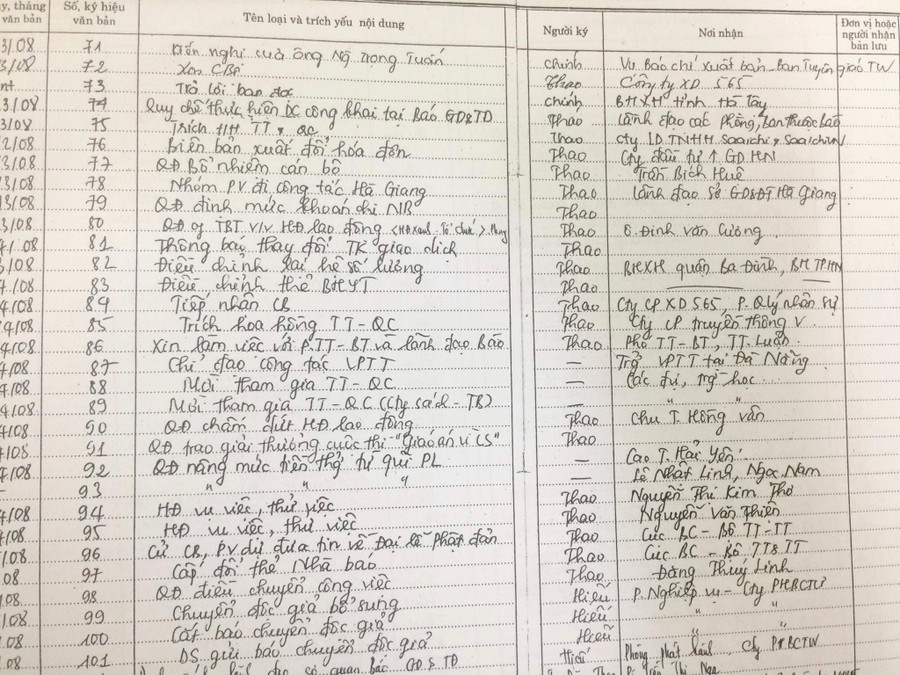 y, tháng văn bản | Số, ký hiệu văn bản | Tên loại và trích yếu nội dung | Người ký | Nơi nhận | Đơn vị hoặc người nhận bản lưu
3/08 71 Kiến nghị của ông Ng Trọng Tuấn chính Vụ Báo chí xuất bản - Ban Tuyên giáo TW
3/08 72 Xin CBộ Thao Công ty XD 565
nt 73 Trả lời bạn đọc chính BHXH tỉnh Hà Tây
3/08 74 Quy chế thực hiện DC công khai tại Báo GD&TD Thao Lãnh đạo các phòng, ban thuộc báo
3/08 75 Trích HH TT & QC Thao Cty LD TNHH
2/08 76 Biên bản xuất đổi hóa đơn Thao Cty đầu tư GD HN
3/08 77 QĐ Bổ nhiệm cán bộ Thao Trần Bích Huê
3/08 78 Nhóm PV đi công tác Hà Giang Thao Lãnh đạo sở GD&ĐT Hà Giang
3/08 79 QĐ định mức khoán chi NB Thao
3/08 80 QĐ of TBT v/v HĐ lao động Thao Ô. Đinh văn Cường
4/08 81 Thông báo thay đổi TK giao dịch Thao
3/08 82 Điều chỉnh lại hệ số lương Thao BHXH quận Ba Đình, BH TPHN
4/08 83 Điều chỉnh thẻ BHYT Thao
4/08 84 Tiếp nhận CB Thao Cty CP XD 565, P. Qlý nhân sự
4/08 85 Trích hoa hồng TT-QC Thao Cty CP truyền thông V
4/08 86 Xin làm việc với P.TT-BT và lãnh đạo Báo Thao Phó TT-BT, TT. Luận
4/08 87 Chỉ đạo công tác VPTT — Trg VPTT tại Đà Nẵng
4/08 88 Mời tham gia TT-QC —
4/08 89 Mời tham gia TT-QC (Cty sách-TB) — "
4/08 90 QĐ chấm dứt HĐ lao động Thao Chu T. Hồng Vân
4/08 91 QĐ trao giải thưởng cuộc thi "Giáo án vì CS" Thao
4/08 92 QĐ nâng mức tiền thg từ quĩ PL — Cao T. Hải Yến
- 93 " " " — Lê Nhật Linh, Ngọc Nam
4/08 94 HĐ vụ việc, thử việc Thao Nguyễn Thị Kim Thơ
4/08 95 HĐ vụ việc, thử việc Thao Nguyễn Văn Thiên
4.08 96 Cử CB, PV dự đưa tin về Đại lễ Phật đản Thao Cục BC - Bộ TT-TT
08 97 Cấp đổi thẻ Nhà báo Thao Cục BC - Bộ TT&TT
/08 98 QĐ điều chuyển công việc Thao Đặng Thuỳ Linh
/08 99 Chuyển độc giả bổ sung Hiếu P. Nghiệp vụ - Cty PHBCTW
.08 100 Cắt báo chuyển độc giả Hiếu " "
.08 101 DS gửi báo chuyển độc giả Hiếu "
Hiếu Phòng phát hành, Cty PHBCTW